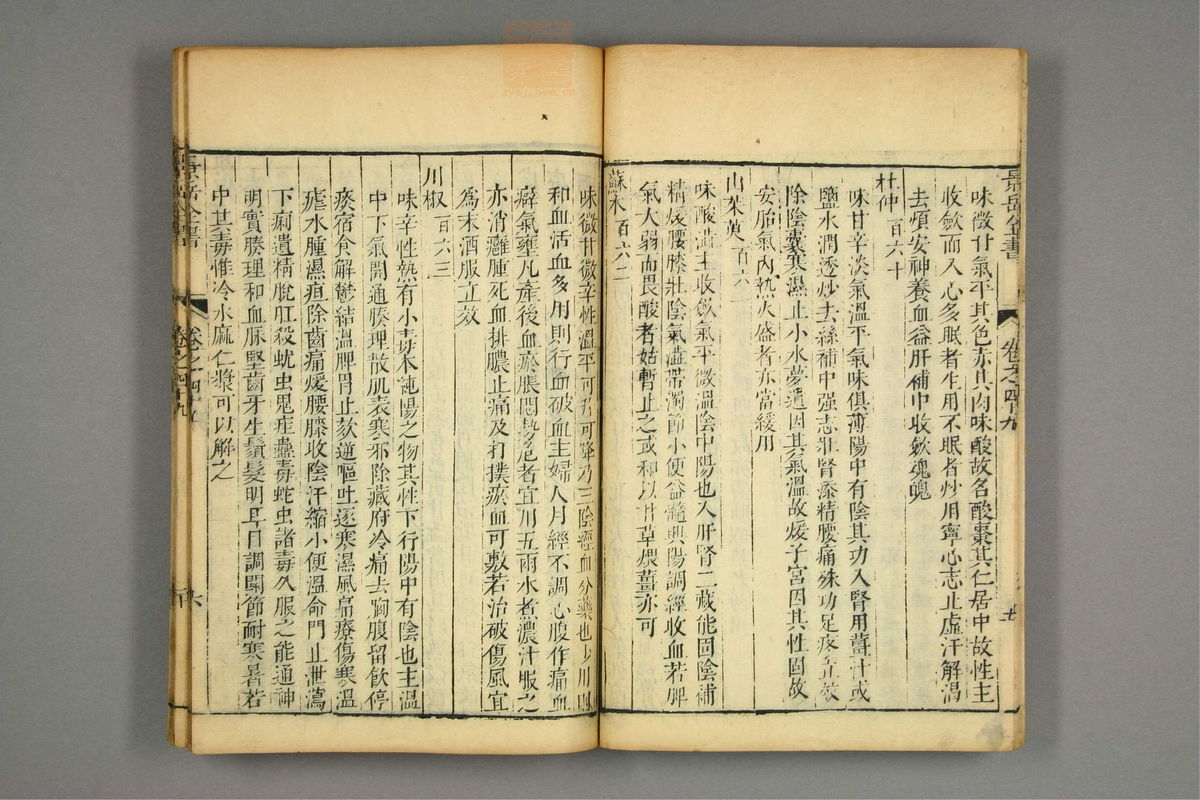 景岳全書
卷之四十九
味微甘氣平其色赤其肉味酸故名酸棗其仁居中故性主
收斂而入心多眠者生用不眠者炒用寧心志止虛汗解渴
去煩安神養血益肝補中收斂魂魄
杜仲 百六十
味甘辛淡氣溫平氣味俱薄陽中有陰其功入腎用薑汁或
鹽水潤透炒去絲補中强志壯腎添精腰痛殊功足疼立效
除陰囊寒濕止小水夢遺因其氣溫故煖子宮因其性固故
安胎氣內熱火盛者亦當緩用
山茱萸 百六
味酸澁主收斂氣平微溫陰中陽也入肝腎二藏能固陰補
精煖腰膝壯陰氣澁帶濁節小便益髓興陽調經收血若脾
氣大弱而畏酸者姑暫止之或和以甘草煨薑亦可
蘇木 百六二
味微甘微辛性溫平可升可降乃三陰經血分藥也少用則
和血活血多用則行血破血主婦人月經不調心腹作痛血
癖氣壅凡產後血瘀脹悶勢危者宜用五兩水煮濃汁服之
亦消癰腫死血排膿止痛及打撲瘀血可敷若治破傷風宜
爲末酒服立效
川椒 百六三
味辛性熱有小毒本純陽之物其性下行陽中有陰也主溫
中下氣開通腠理散肌表寒邪除藏府冷痛去胸腹留飲停
痰宿食解鬱結溫脾胃止欬逆嘔吐逐寒濕風痛療傷寒溫
瘧水腫濕疸除齒痛煖腰膝收陰汗縮小便溫命門止泄瀉
下痢遺精脫肛殺蚘虫鬼疰蠱毒蛇虫諸毒久服之能通神
明實腠理和血脉堅齒牙生鬚髮明耳目調關節耐寒暑若
中其毒惟冷水麻仁漿可以解之
景岳全書
卷之四十九